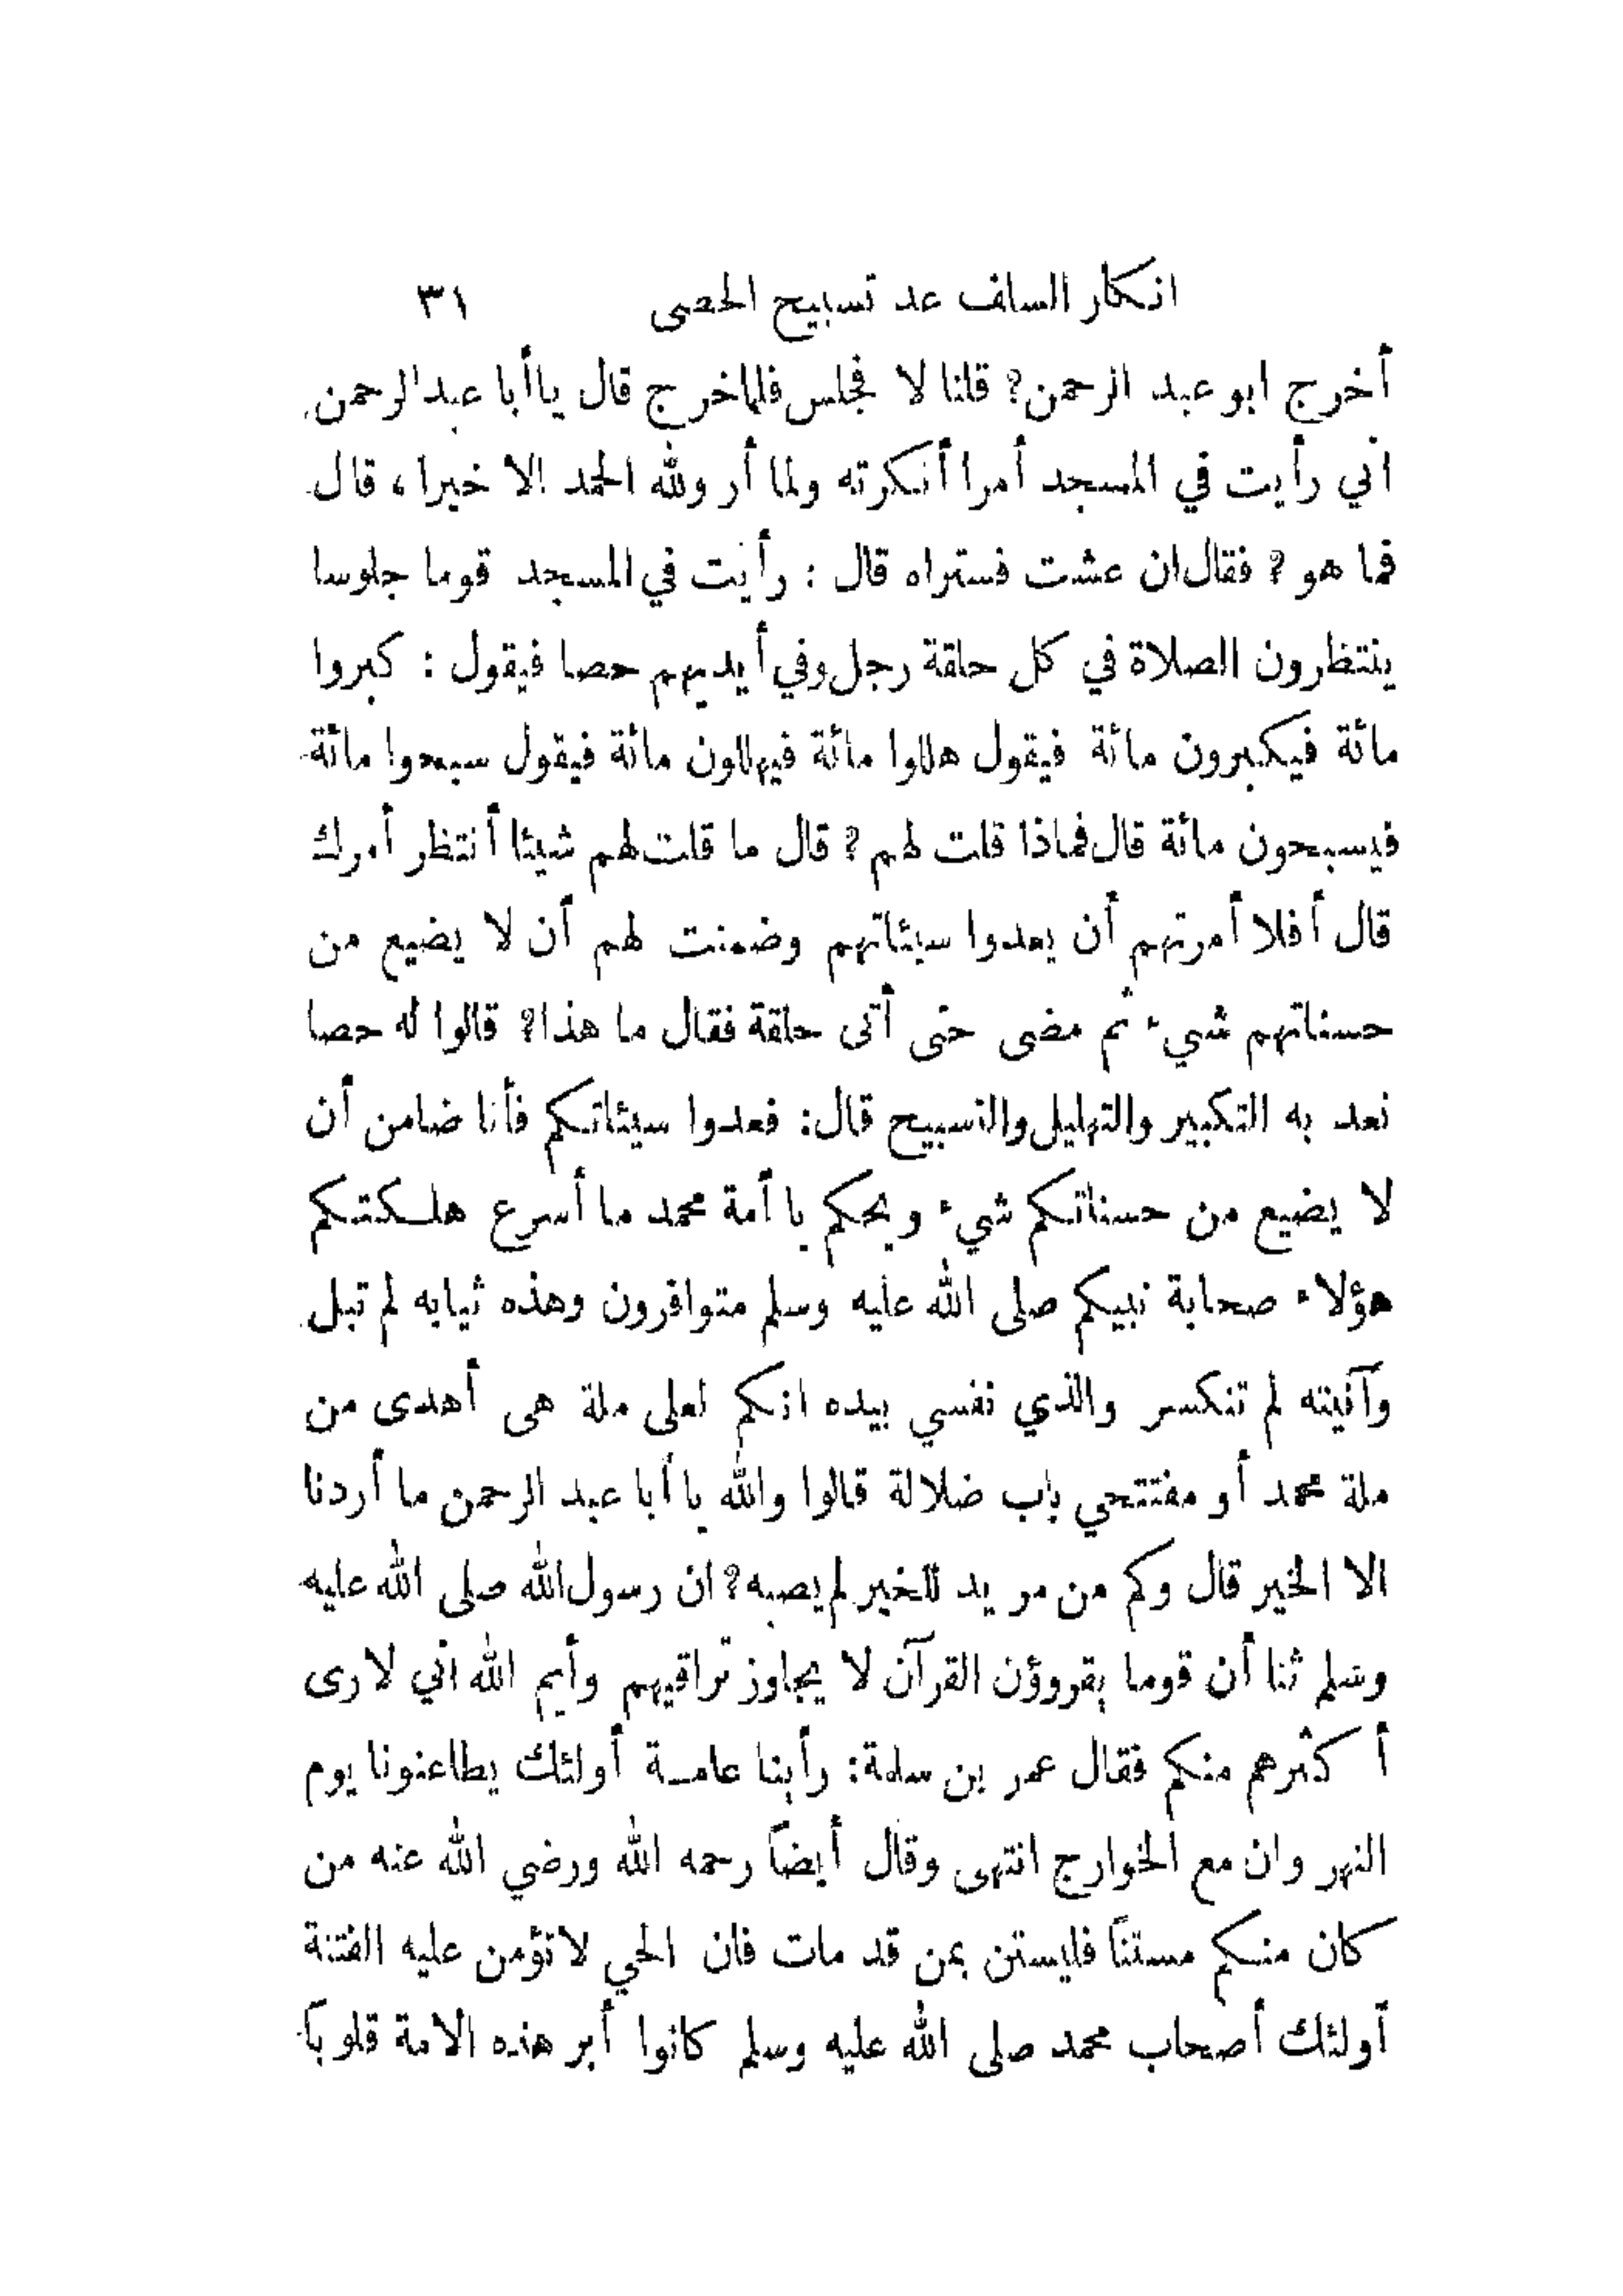 انكار السلف عد تسبيح الحصى ٣١
أخرج ابو عبد الرحمن؟ قلنا لا فجلس فلما خرج قال يا أبا عبد الرحمن
اني رأيت في المسجد أمرا أنكرته ولما أر ولله الحمد الا خيرا، قال
فما هو؟ فقال ان عشت فستراه قال : رأيت في المسجد قوما جلوسا
ينتظرون الصلاة في كل حلقة رجل وفي أيديهم حصا فيقول : كبروا
مائة فيكبرون مائة فيقول هللوا مائة فيهللون مائة فيقول سبحوا مائة
فيسبحون مائة قال فماذا قلت لهم؟ قال ما قلت لهم شيئا أنتظر أمرك
قال أفلا أمرتهم أن يعدوا سيئاتهم وضمنت لهم أن لا يضيع من
حسناتهم شيء ثم مضى حتى أتى حلقة فقال ما هذا؟ قالوا له حصا
نعد به التكبير والتهليل والتسبيح قال: فعدوا سيئاتكم فأنا ضامن أن
لا يضيع من حسناتكم شيء ويحكم يا أمة محمد ما أسرع هلكتكم
هؤلاء صحابة نبيكم صلى الله عليه وسلم متوافرون وهذه ثيابه لم تبل
وآنيته لم تنكسر والذي نفسي بيده انكم لعلى ملة هى أهدى من
ملة محمد أو مفتتحي باب ضلالة قالوا والله يا أبا عبد الرحمن ما أردنا
الا الخير قال وكم من مريد للخير لم يصبه؟ ان رسول الله صلى الله عليه
وسلم ثنا أن قوما يقروؤن القرآن لا يجاوز تراقيهم وأيم الله اني لارى
أكثرهم منكم فقال عمر بن سلمة: رأينا عامة أولئك يطاعنونا يوم
النهر وان مع الخوارج انتهى وقال أيضاً رحمه الله ورضي الله عنه من
كان منكم مستناً فليستن بمن قد مات فان الحي لا تؤمن عليه الفتنة
أولئك أصحاب محمد صلى الله عليه وسلم كانوا أبر هذه الامة قلوباً